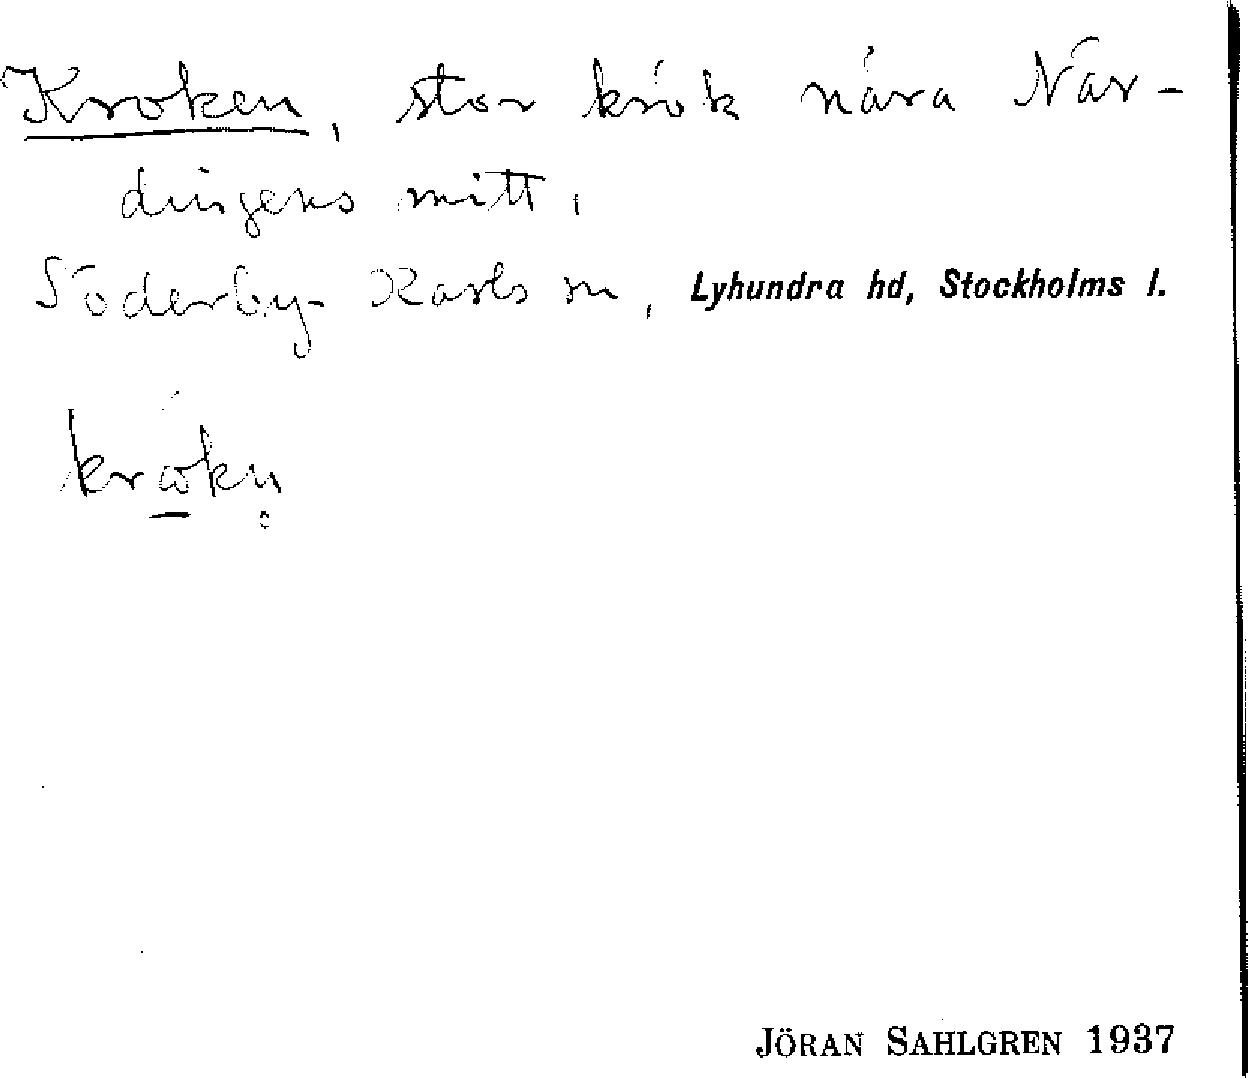 Kroken, stor krök nära När-
dingens mitt,
Söderby-Karls sn, Lyhundra hd, Stockholms l.
krωkn̥
JÖRAN SAHLGREN 1937